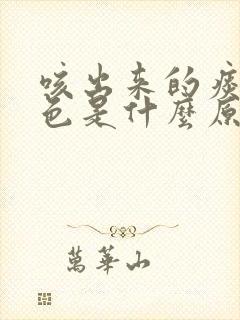 咳出来的痰
色是什麼原
萬華山